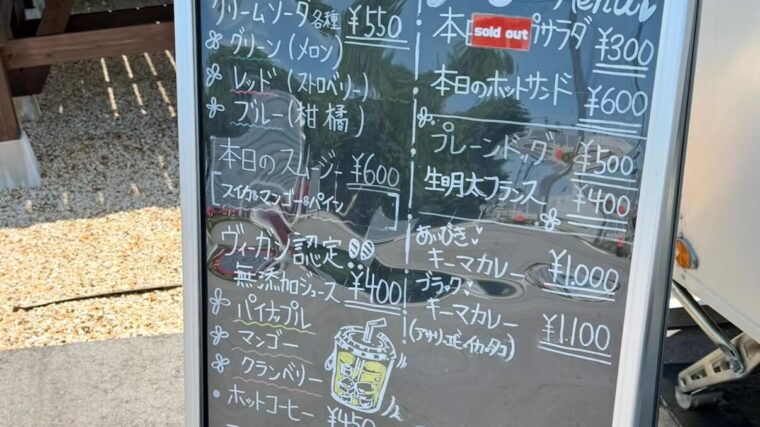 クリームソーダ各種 ¥550
グリーン(メロン)
レッド(ストロベリー)
ブルー(柑橘)
本日のスムージー ¥600
スイカ&マンゴー&パイン
ヴィーガン認定
無添加ジュース ¥400
パイナップル
マンゴー
クランベリー
ホットコーヒー ¥450
Menu
本日 sold out プサラダ ¥300
本日のホットサンド ¥600
プレーンドッグ ¥500
生明太フランス ¥400
あいびき
キーマカレー ¥1.000
ブラック
キーマカレー ¥1.100
(アサリ、エビ、イカ、タコ)